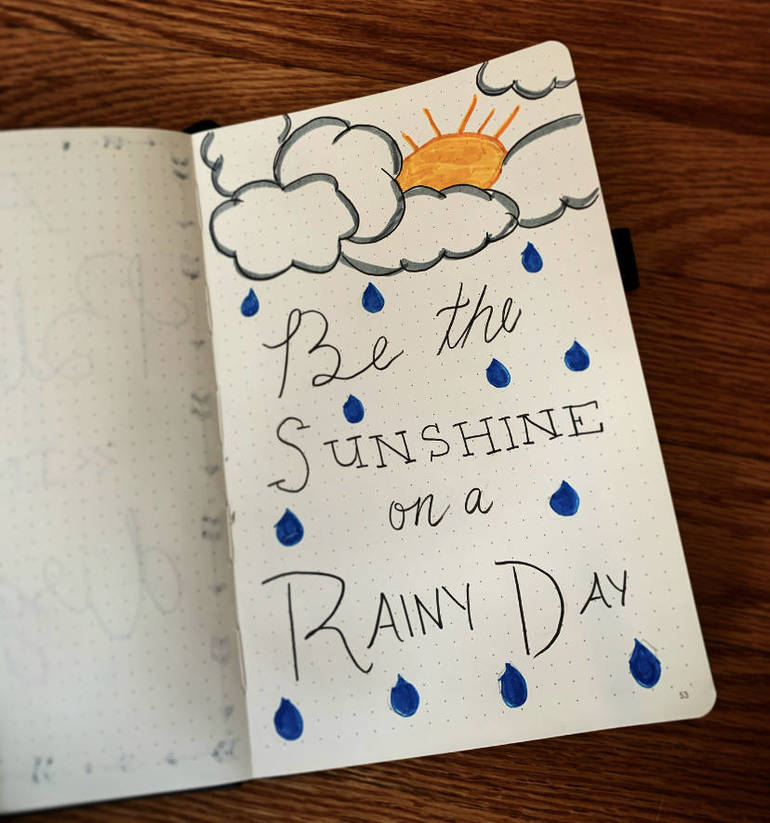 Be the
SUNSHINE
on a
RAINY DAY
53